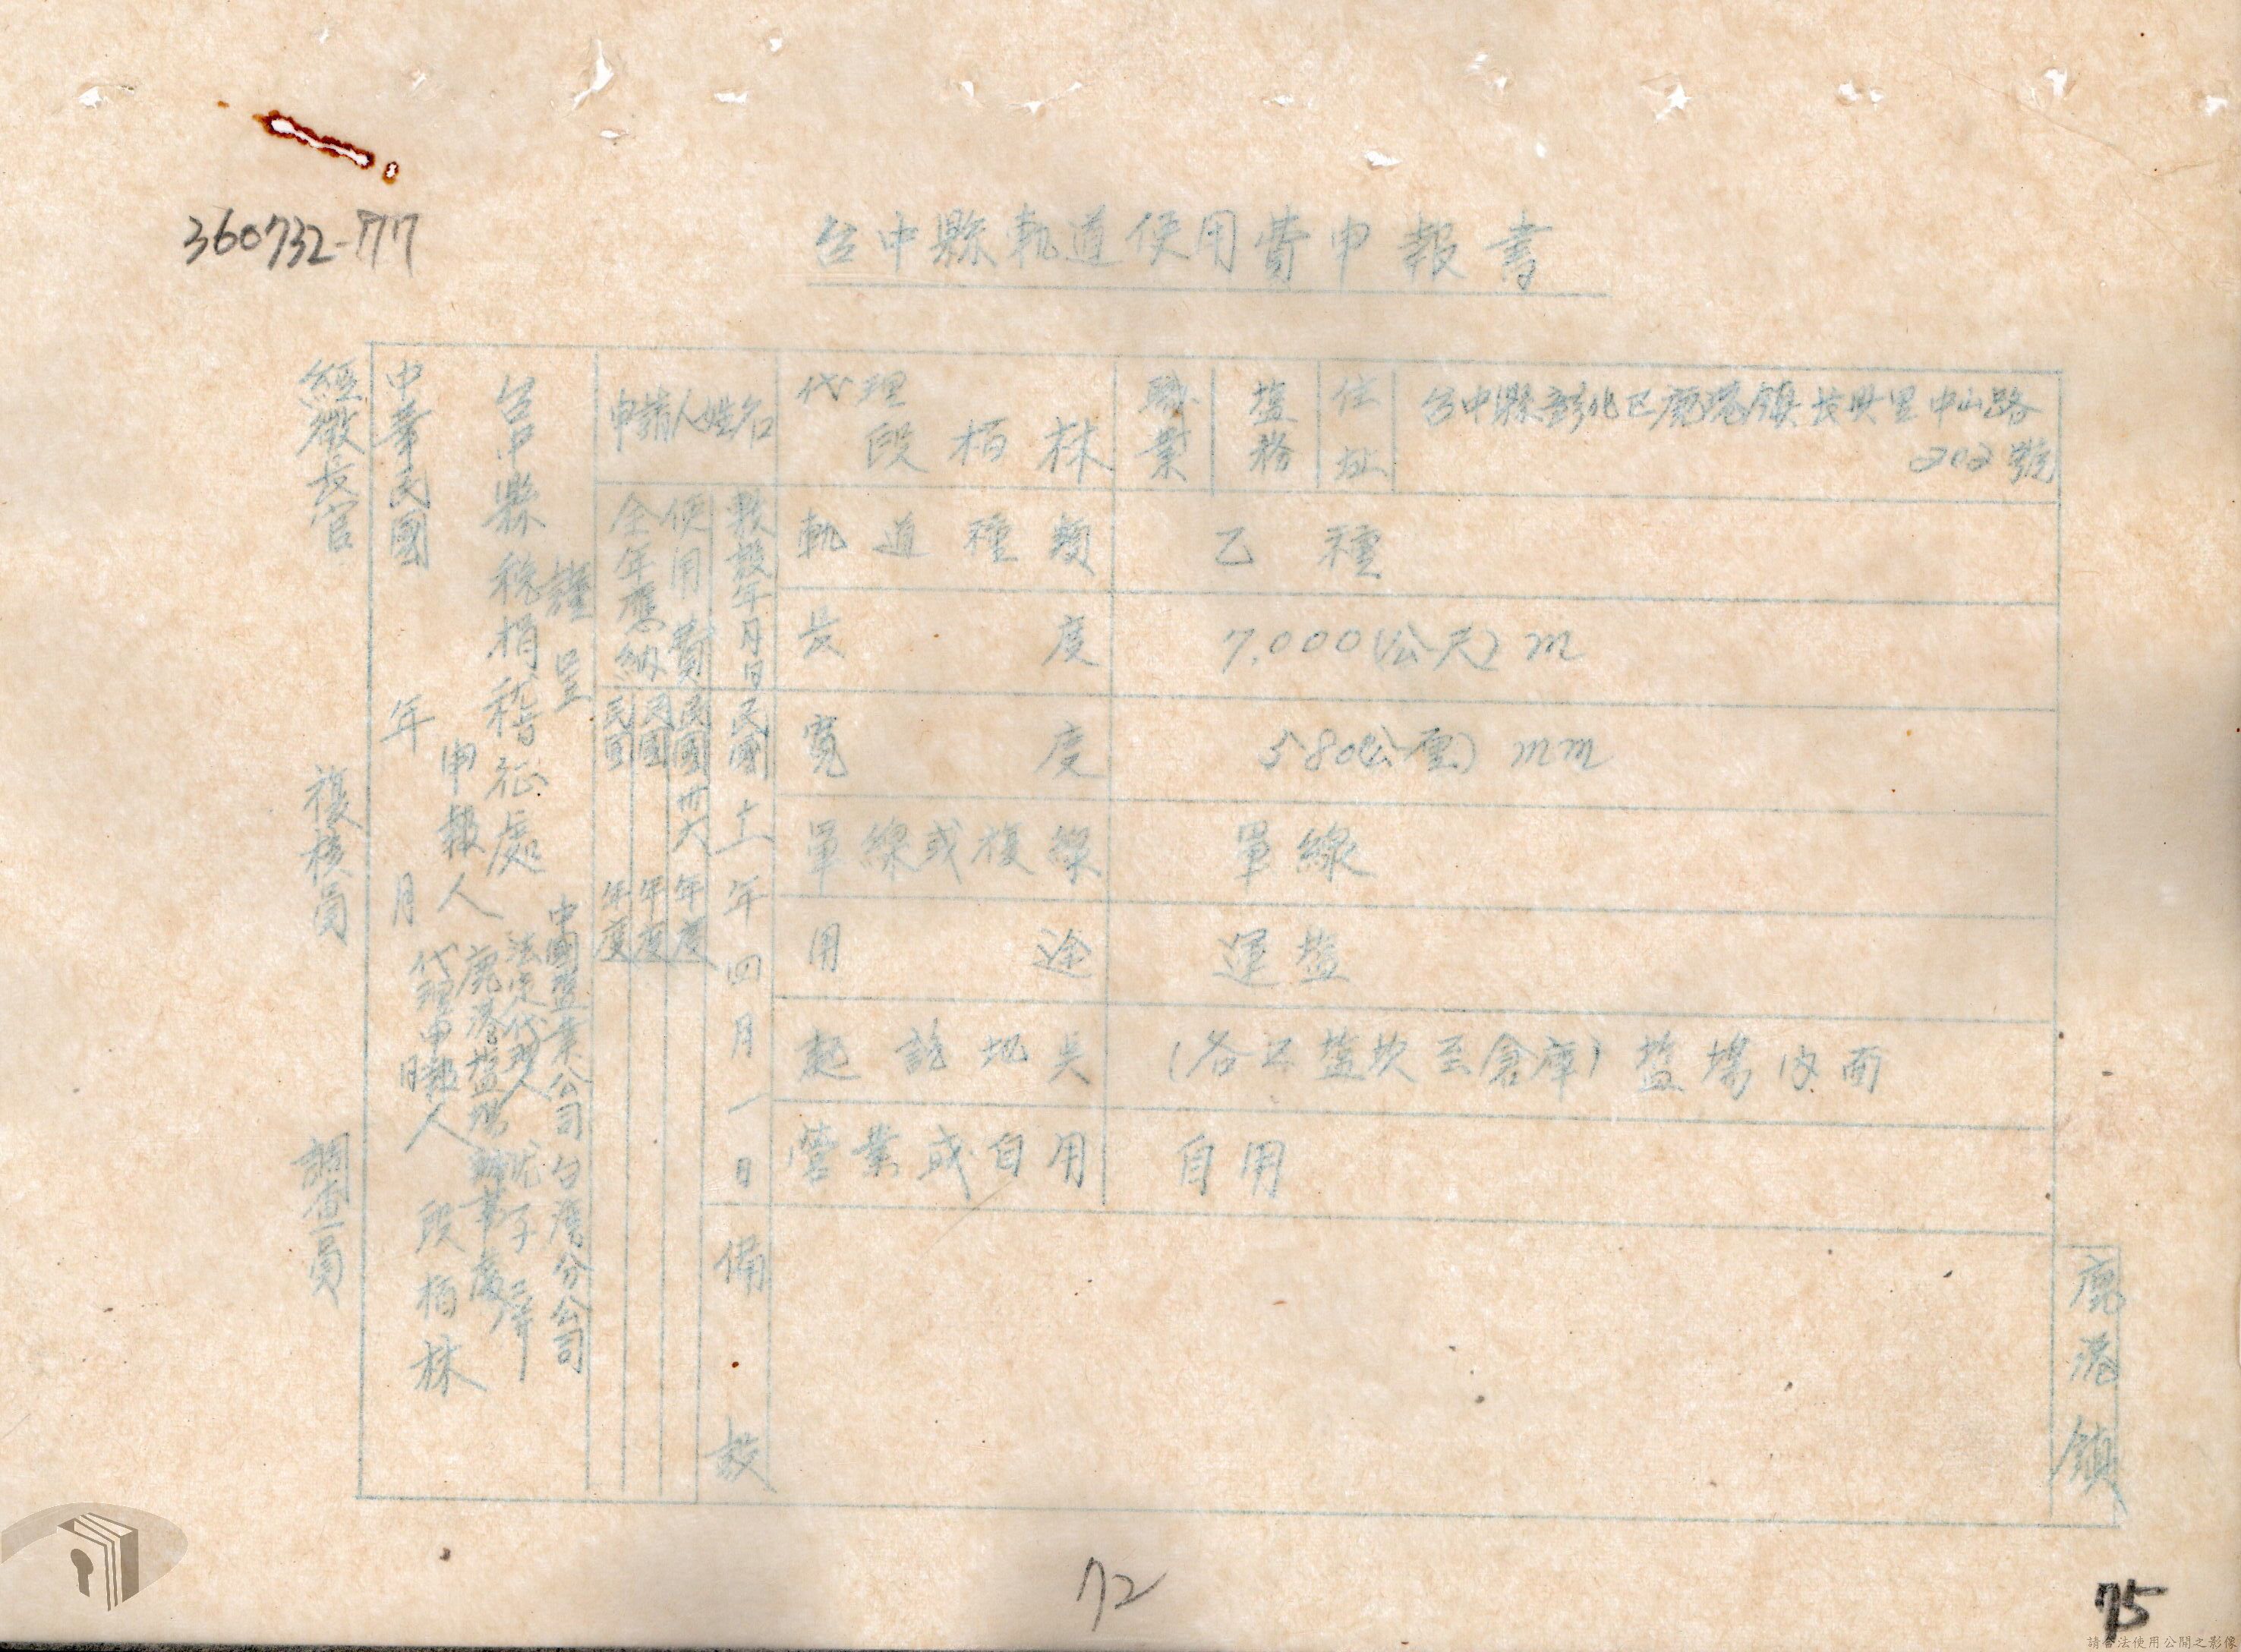 360732-717
台中縣軌道使用費申報書
鹿港鎮
申請人姓名
代理
段栢林
職業
塩務
住址
台中縣彰化区鹿港鎮長興里中山路
202號
軌道種類
乙種
長度
7,000(公尺) m
寬度
580(公厘) mm
單線或複線
單線
用途
運塩
起訖地点
(各区塩坎至倉庫) 塩場内面
營業或自用
自用
敷設年月日
民國十一年四月一日
備
使用費
全年應納
民國卅六年度
民國 年度
民國 年度
謹呈
台中縣稅捐稽征處
中國塩業公司台灣分公司
申報人
法定代理人
鹿港塩場辦事處
代理申報人 段栢林
中華民國 年 月 日
經徵長官
複核員
調查員
72
75
請合法使用公開之影像